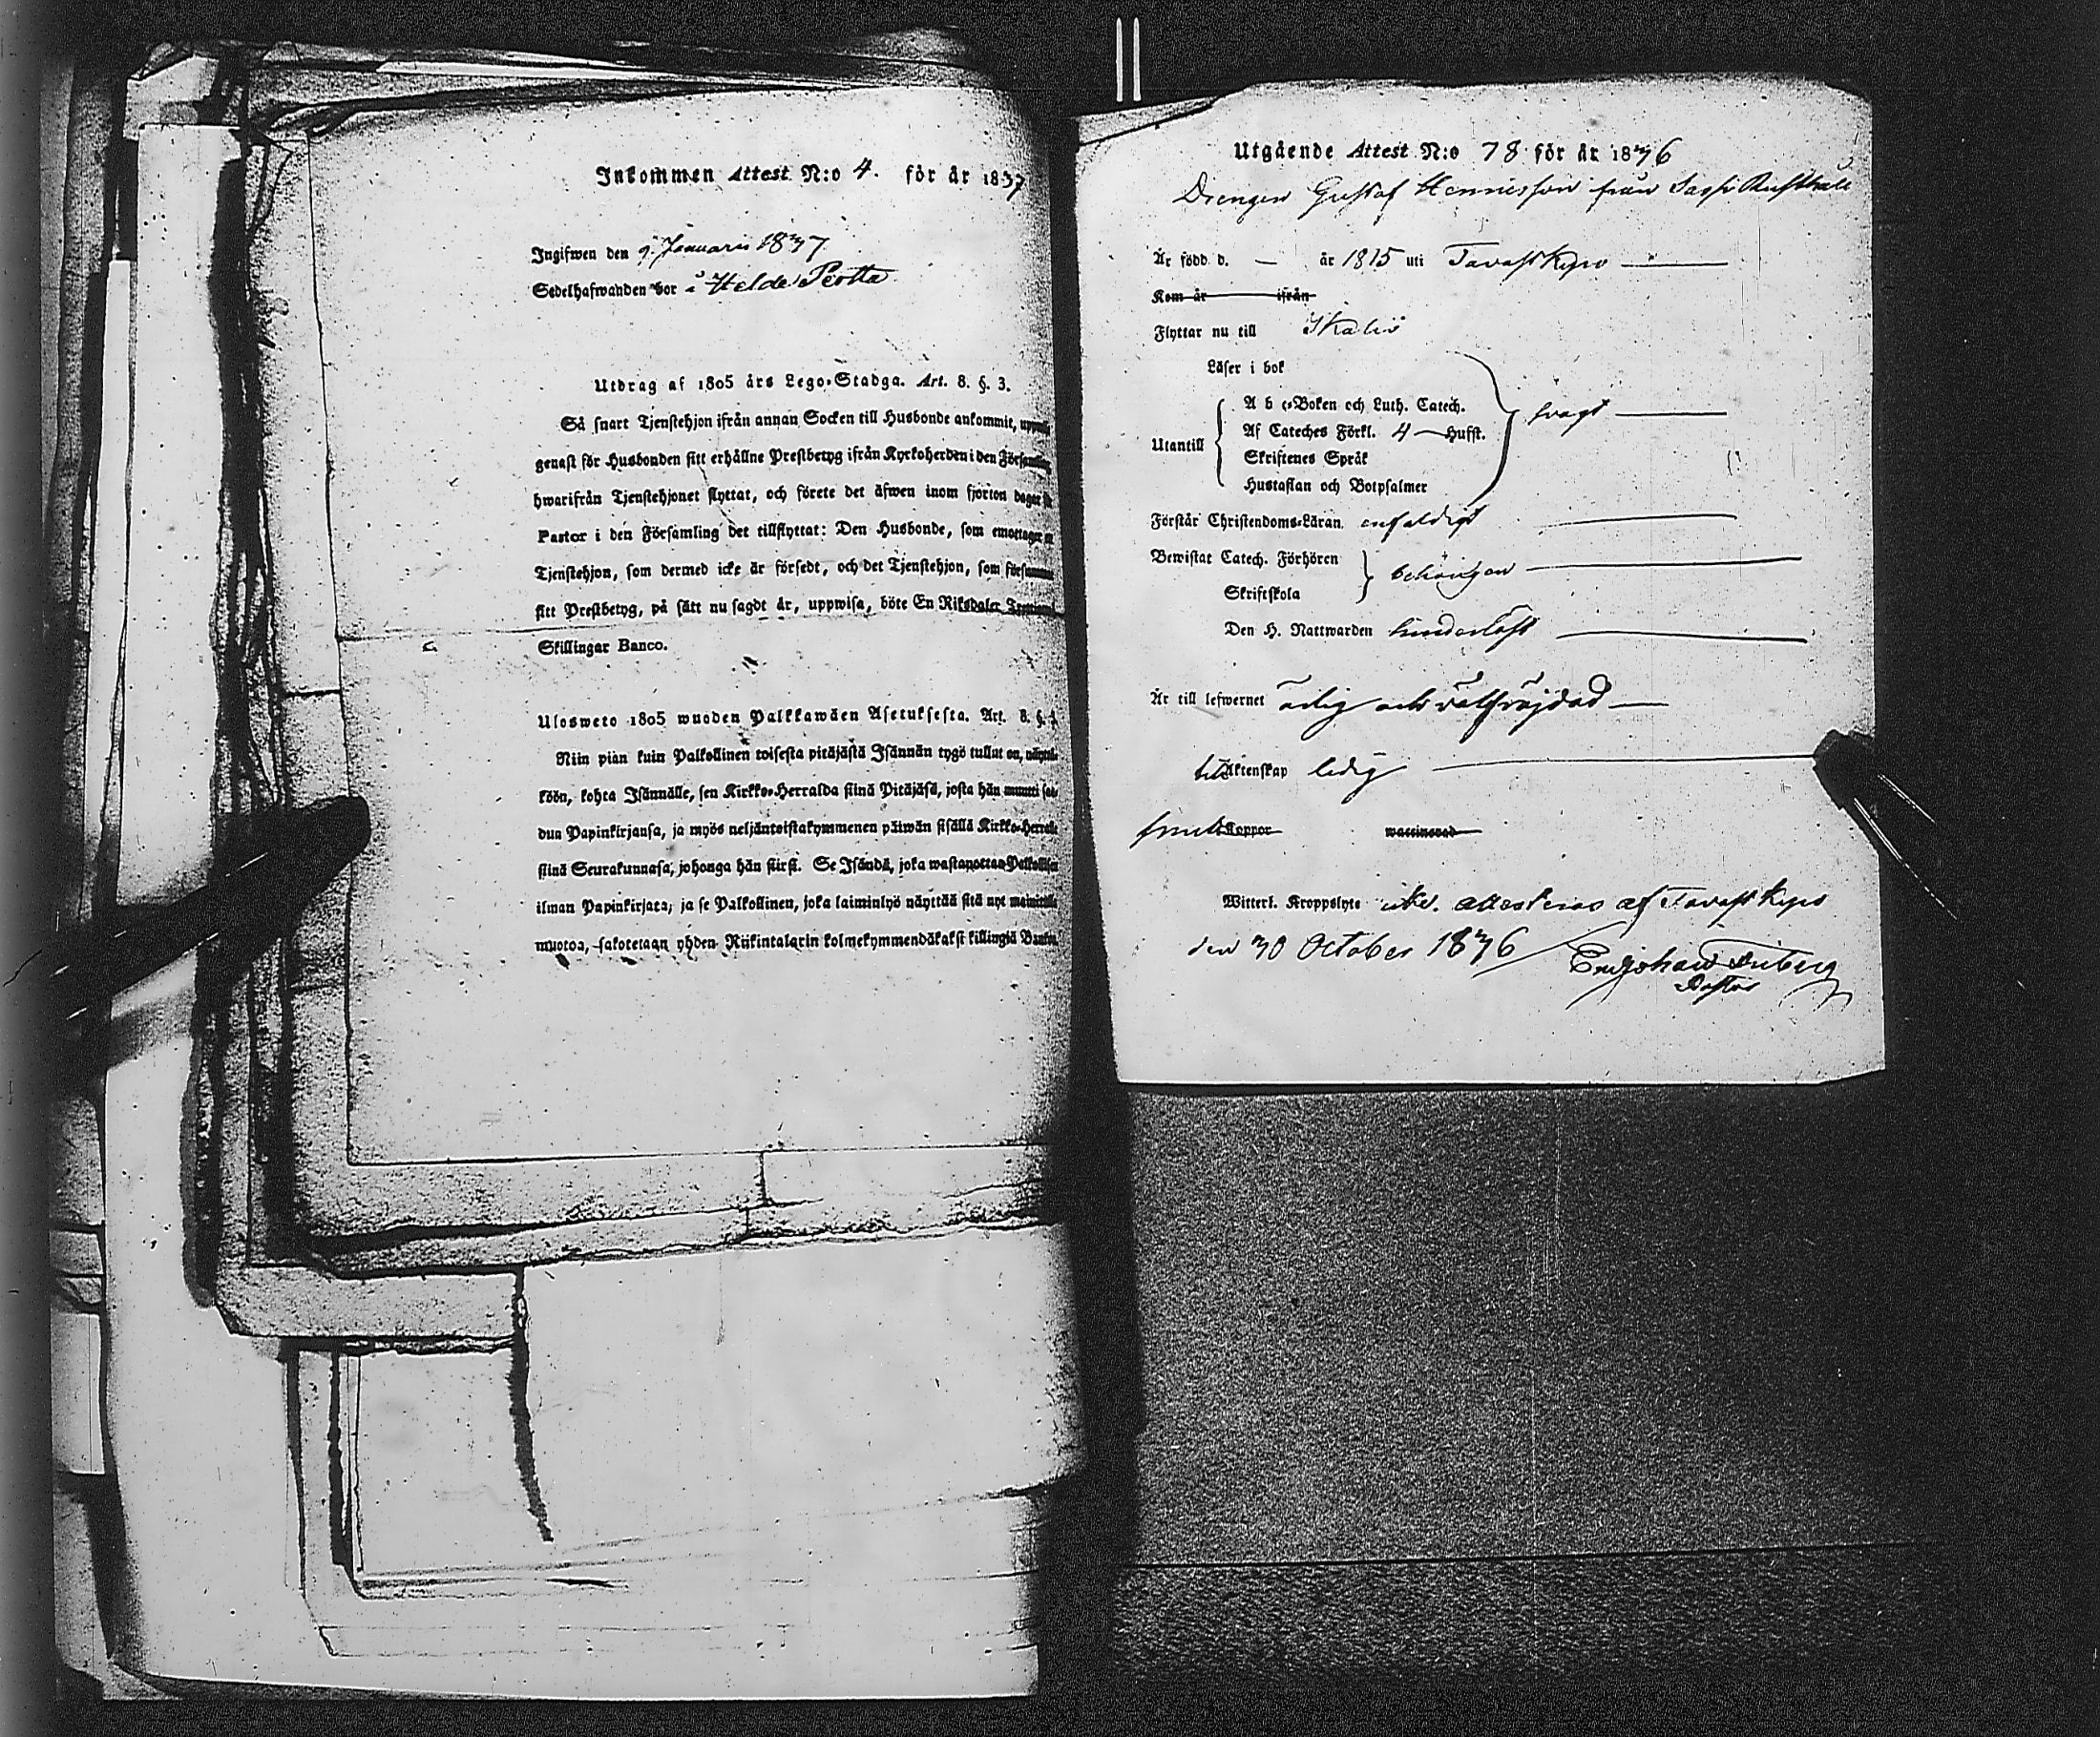 Inkommen Attest N:o 4. för år 1837
Ingifwen den 9. Januarii 1837
Sedelhafwanden bor i Heldé Pertta
Utdrag af 1805 års Lego-Stadga. Art. 8. §. 3.
Så snart Tjenstehjon ifrån annan Socken till Husbonde ankommit,
genast för Husbonden sitt erhållne Prestbetyg ifrån Kyrkoherden i den Församling
hwarifrån Tjenstehjonet flyttat, och förete det äfwen inom fjorton dagar
Pastor i den Församling det tillflyttat: Den Husbonde, som emottager
Tjenstehjon, som dermed icke är försedt, och det Tjenstehjon, som
sitt Prestbetyg, på sätt nu sagdt är, uppwisa, böte En Riksdaler
Skillingar Banco.
Ulosweto 1805 wuoden Palkkawäen Asetuksesta. Art. 8. §. 3.
Niin pian kuin Palkollinen toisesta pitäjästä Isännän tygö tullut on,
köön, kohta Isännälle, sen Kirkko-Herralda siinä Pitäjäsä, josta hän muutti
dun Papinkirjansa, ja myös neljäntoistakymmenen päiwän sisällä Kirkko-Herralle
siinä Seurakunnasa, johonga hän siirsi. Se Isändä, joka wastanottaa Palkollisen
ilman Papinkirjata, ja se Palkollinen, joka laiminlyö näyttää sitä nyt mainitulla
muotoa, sakotetaan yhden Riikintalarin kolmekymmendäkaksi killingiä Bankos
Utgående Attest N:o 78 för år 1836
Drengen Gustaf Hennisson från Sassi Rusthåll
Är född d. — år 1815 uti Tavastkyro
Kom år ifrån
Flyttar nu till Ikalis
Läser i bok
A b c-Boken och Luth. Catech.
Utantill Af Cateches Förkl. 4 Hufst. svagt
Skriftenes Språk
Hustaflan och Botpsalmer
Förstår Christendoms-Läran enfaldigt
Bewistat Catech. Förhören
behörigen
Skriftskola
Den H. Nattwarden hinderlöst
Är till lefwernet ärlig och välfräjdad
till Äktenskap ledig
Koppor waccinerad
Witterl. Kroppslyte icke. attesteras af Tavastkyro
den 30 October 1836
Friberg
Pastor